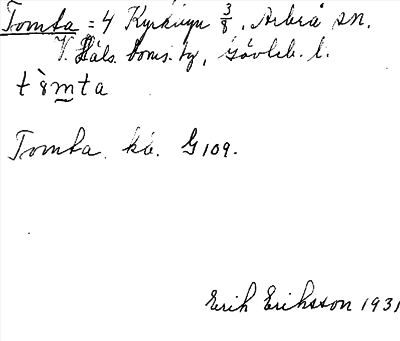 Tomta = 4 Kyrkbyn 3/8, Arbrå sn.
V. Häls. doms. by, Gävleb. l.
Tomta kb. G 109.
Erik Eriksson 1931